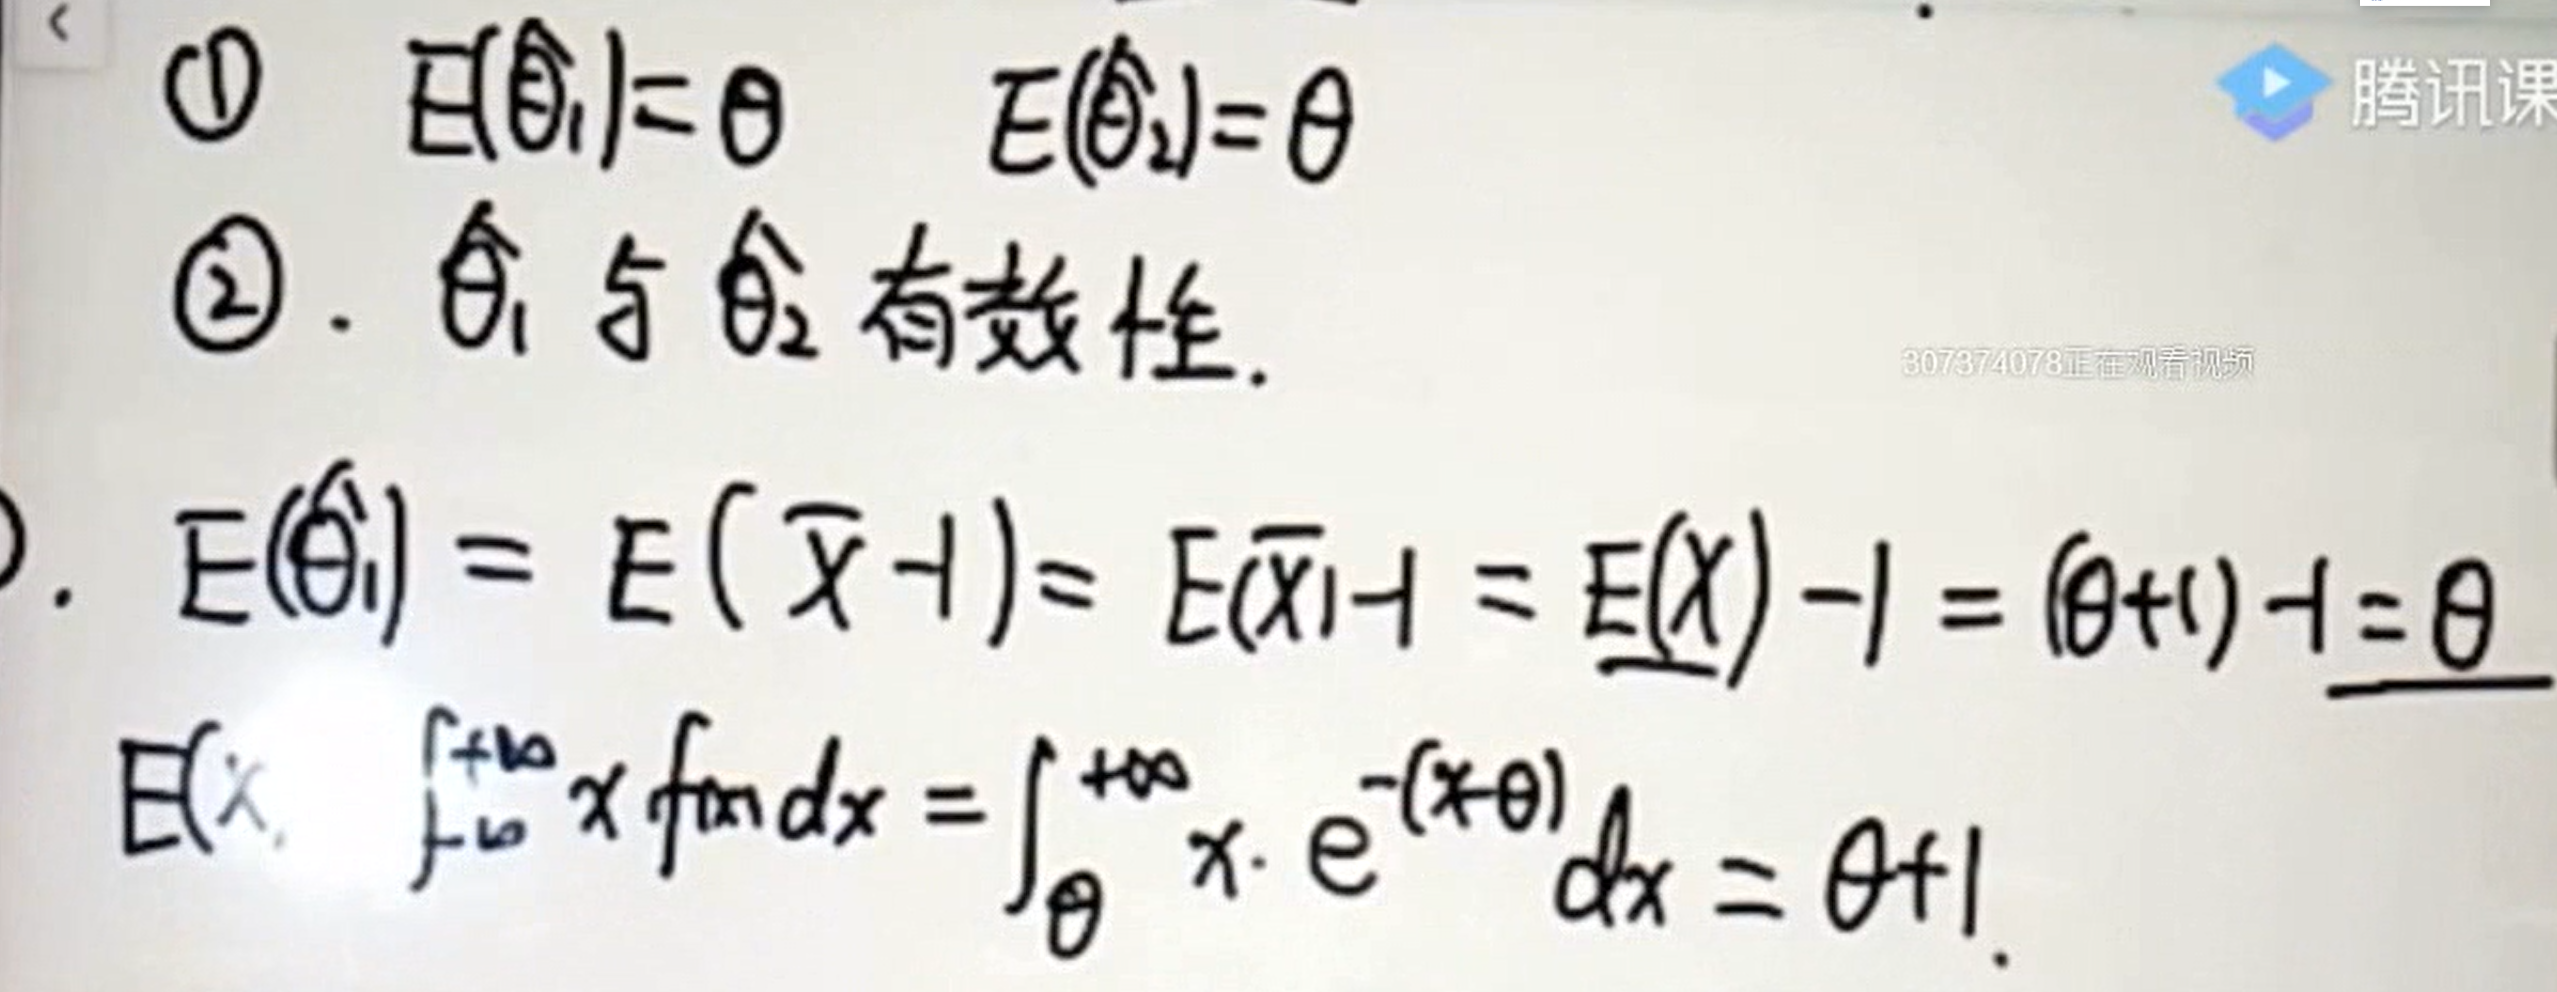 ① E(θ̂₁)=θ E(θ̂₂)=θ
腾讯课
②. θ̂₁ 与 θ̂₂ 有效性.
307374078正在观看视频
). E(θ̂₁) = E(X̄-1) = E(X̄)-1 = E(X)-1 = (θ+1)-1 = θ
E(X ∫_{-∞}^{+∞} x f(x) dx = ∫_θ^{+∞} x·e^{-(x-θ)} dx = θ+1.